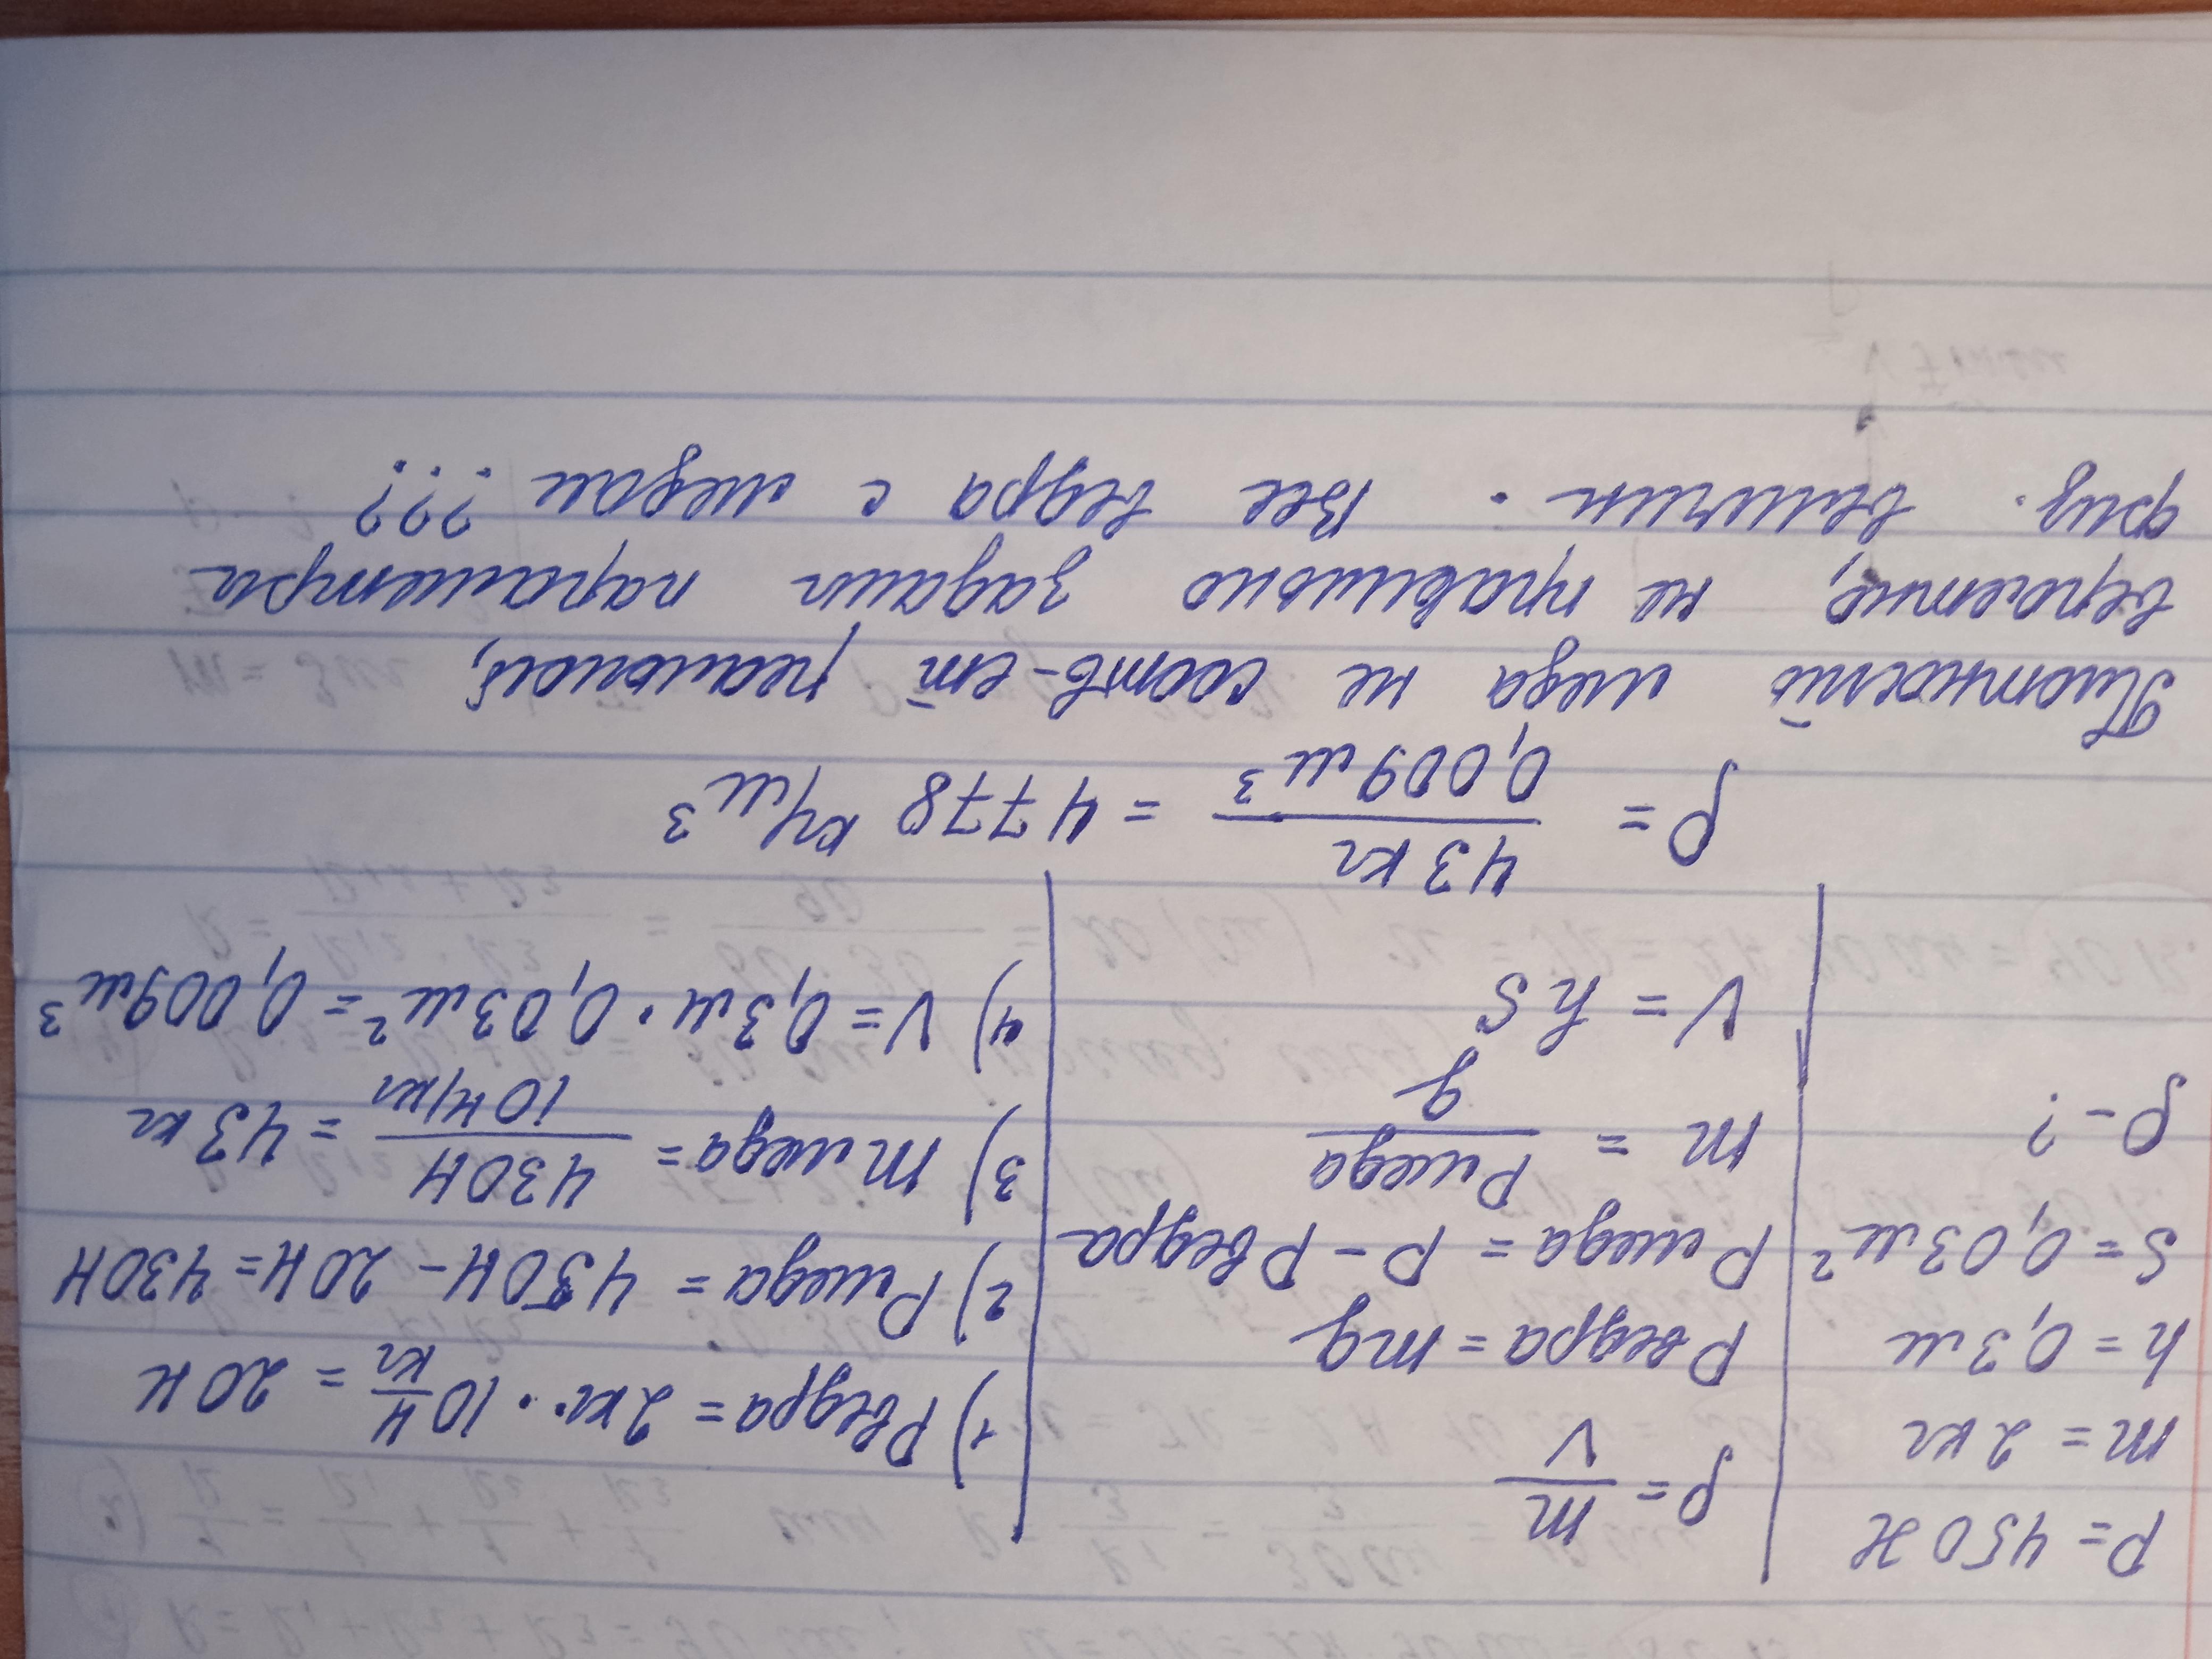 P = 450 Н
m = 2 кг
h = 0,3 м
S = 0,03 м²
ρ - ?
ρ = m/V
Pведра = mg
Pмеда = P - Pведра
m = Pмеда/g
V = hS
1) Pведра = 2кг · 10 Н/кг = 20 Н
2) Pмеда = 450Н - 20Н = 430Н
3) mмеда = 430Н/10Н/кг = 43 кг
4) V = 0,3м · 0,03м² = 0,009м³
ρ = 43 кг/0,009 м³ = 4778 кг/м³
Плотность меда не соотв-ет реальной,
вероятно, не правильно задан параметра
физ. величин. Вес ведра с медом ???